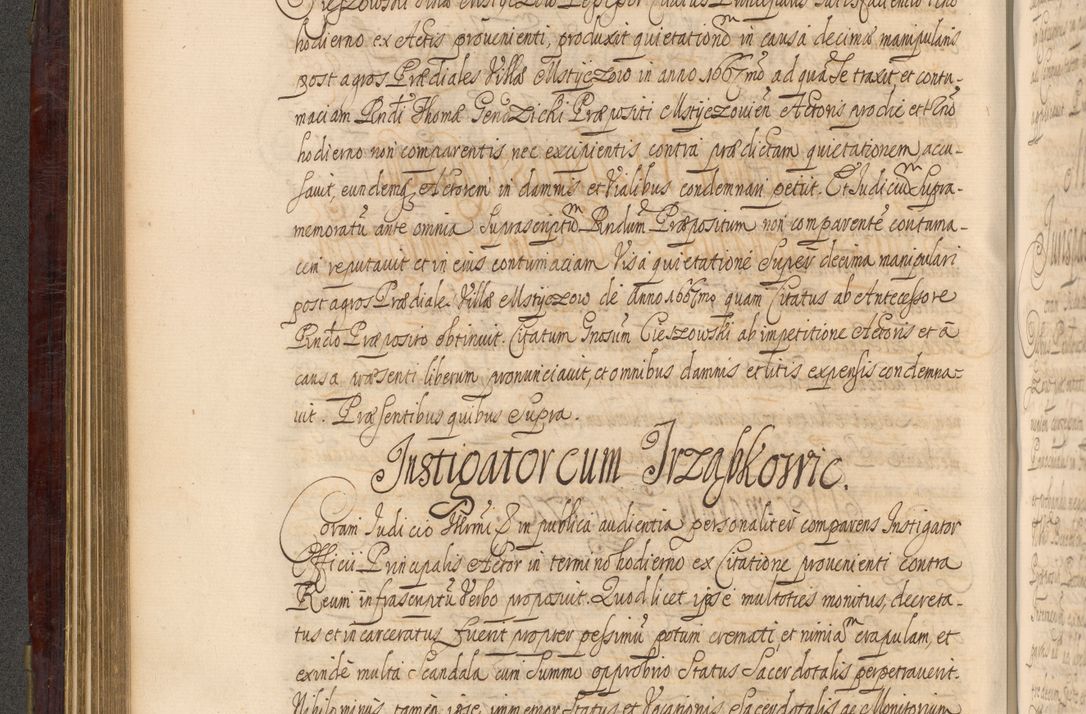 hodierno ex Actis provenienti, produxit quietationē in causa decimæ manipularis
post agros Prædiales Villæ Mstyczow in anno 1667mo ad quā se traxit et contu-
maciam Rndi Thomæ Gendzicki Præpositi Mstyczovień Actoris pro die et tr̄no
hodierno non comparentis nec excipientis contra prædictam quietationem accu-
sauit, eundemq Actorem in damnis et Vialibus condemnari petijt. Et Judiciū supra-
memoratū ante omnia suprascriptū Rndum Præpositum non comparentē contuma-
cem reputauit et in eius contumaciam Visa quietatione super decima manipulari
post agros Prædiales Villæ Mstyczow de anno 1667mo quam Citatus ab Antecessore
Rndo Præposito obtinuit. Citatum Gnosum Cieszowski ab impetitione Actoris et ā
causa præsenti liberum pronunciauit, et omnibus damnis et litis expensis condemna-
uit. Præsentibus quibus supra.
Instigator cum Trząbkowic.
Coram Judicio Illrmi D in publica audientia personaliter comparens Instigator
Officii Principalis Actor in termino hodierno ex Citatione prouenienti contra
Reum infrascriptū Verbo proposuit. Quod licet ipse multoties monitus, decreta-
tus et incarceratus fuerit propter pessimū potum cremati, et nimiā crapulam, et
exinde multa scandala cum summo opprobrio Status Sacerdotalis perpetrauerit.
Nihilominus tamen ipse immemor Status et Vocationis Sacerdotalis ac Monitorium